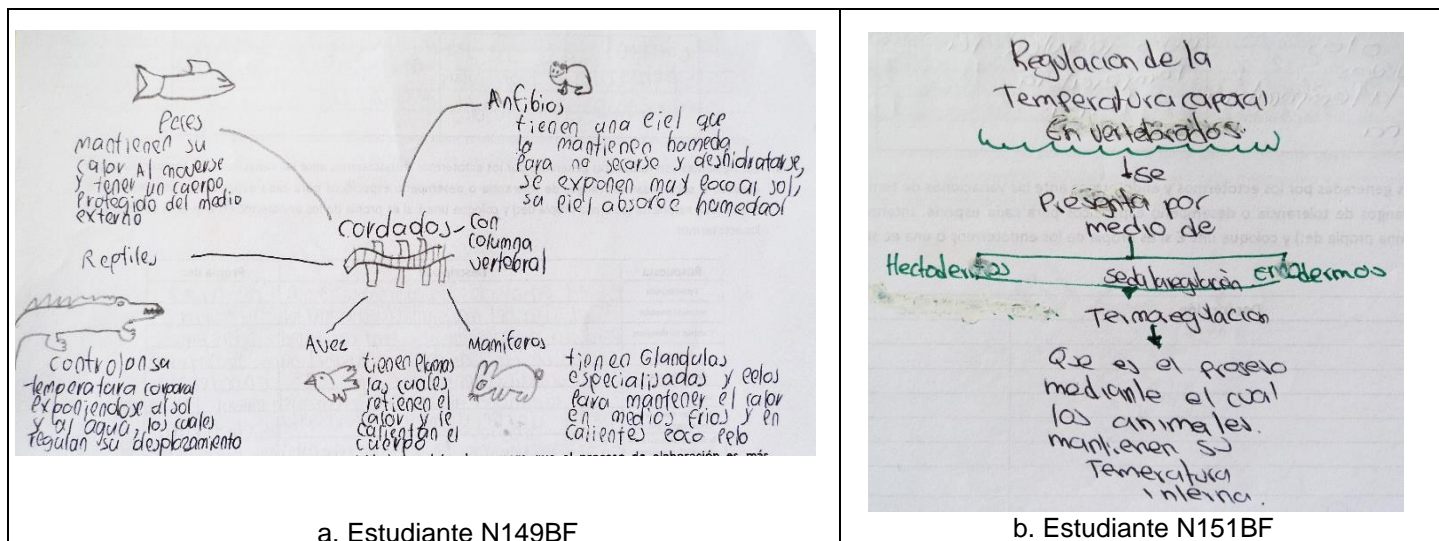 Peces
mantienen su
calor Al moverse
y tener un cuerpo
Protegido del medio
externo
Anfibios
tienen una piel que
la mantienen humeda
Para no secarse y deshidratarse,
se exponen muy poco al sol,
su piel absorbe humedad
Cordados - con
columna
vertebral
Reptiles
controlan su
temperatura corporal
exponiendose al sol
y al agua, los cuales
regulan su desplazamiento
Avez
tienen plumas
las cuales
retienen el
calor y le
calientan el
cuerpo
Mamiferos
tienen Glandulas
especialisadas y pelos
Para mantener el calor
en medios frios y en
calientes poco pelo
a. Estudiante N149BF
Regulacion de la
Temperatura corporal
En vertebrados.
se
Presenta por
medio de
Hectodermos
se da la regulación
Endodermos
Termoregulacion
Que es el proseso
mediante el cual
los animales.
mantienen su
Temeratura
interna.
b. Estudiante N151BF